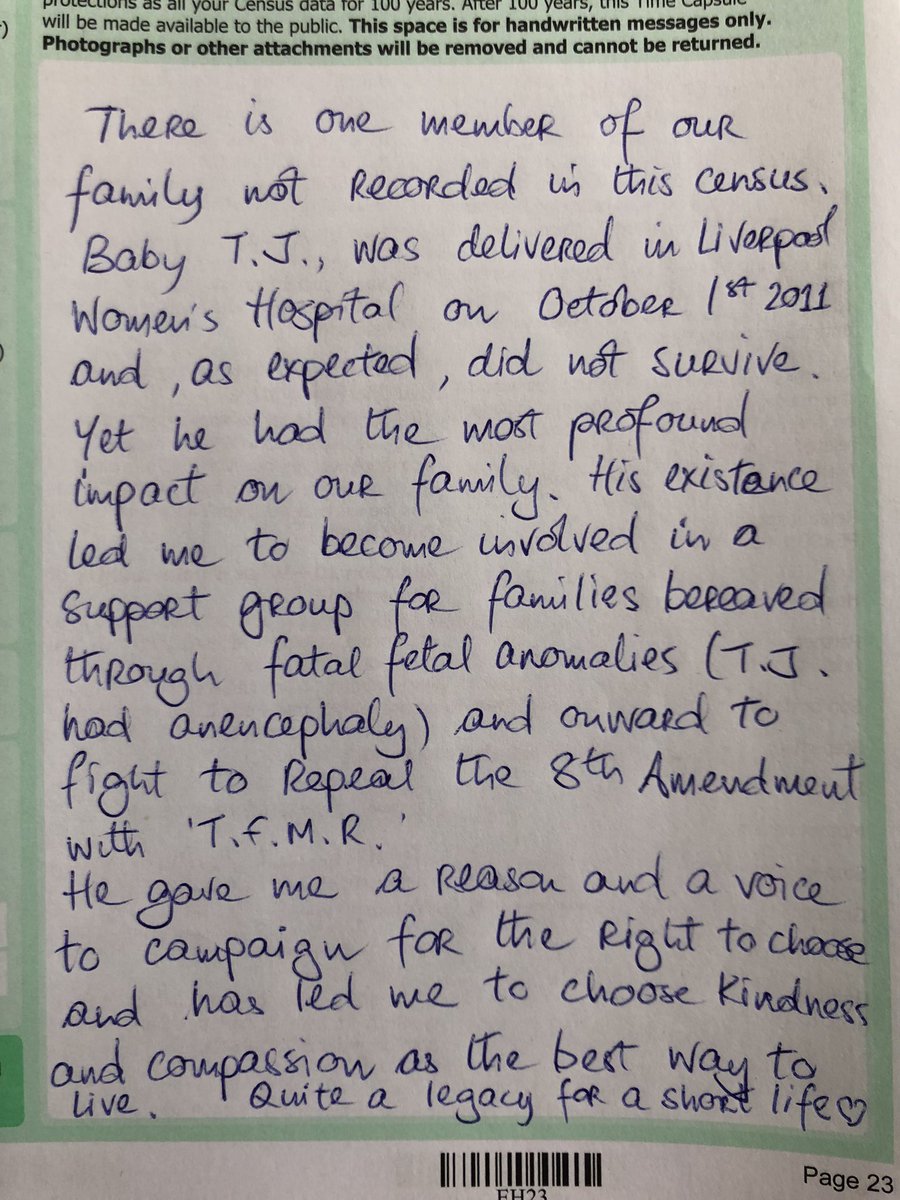 protections as all your Census data for 100 years. After 100 years, this Time Capsule
will be made available to the public. This space is for handwritten messages only.
Photographs or other attachments will be removed and cannot be returned.
There is one member of our
family not recorded in this census.
Baby T.J., was delivered in Liverpool
Women's Hospital on October 1st 2011
and, as expected, did not survive.
Yet he had the most profound
impact on our family. His existance
led me to become involved in a
support group for families bereaved
through fatal fetal anomalies (T.J.
had anencephaly) and onward to
fight to Repeal the 8th Amendment
with 'T.f.M.R.'
He gave me a reason and a voice
to campaign for the right to choose
and has led me to choose kindness
and compassion as the best way to
live. Quite a legacy for a short life♡
EH23
Page 23